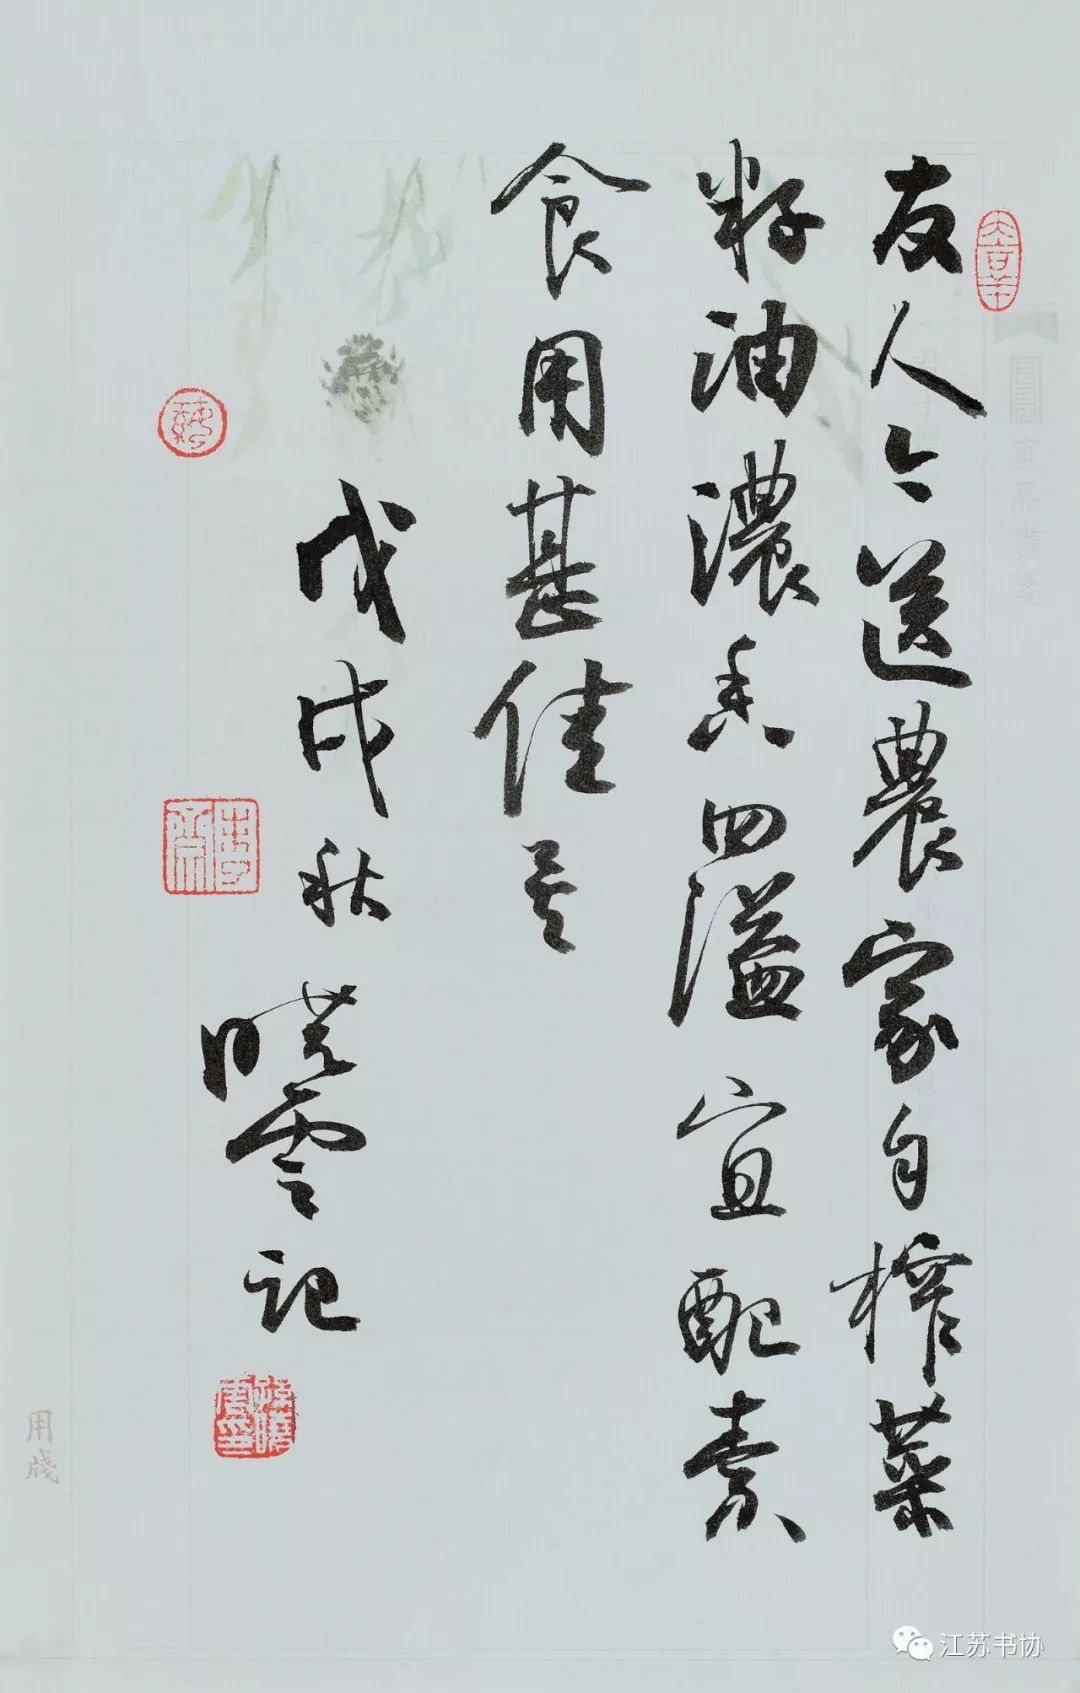 友人今送農家自榨菜
籽油濃香四溢宜配素
食用甚佳矣
戊戌秋曉雲記
孫曉雲印
用牋
江苏书协